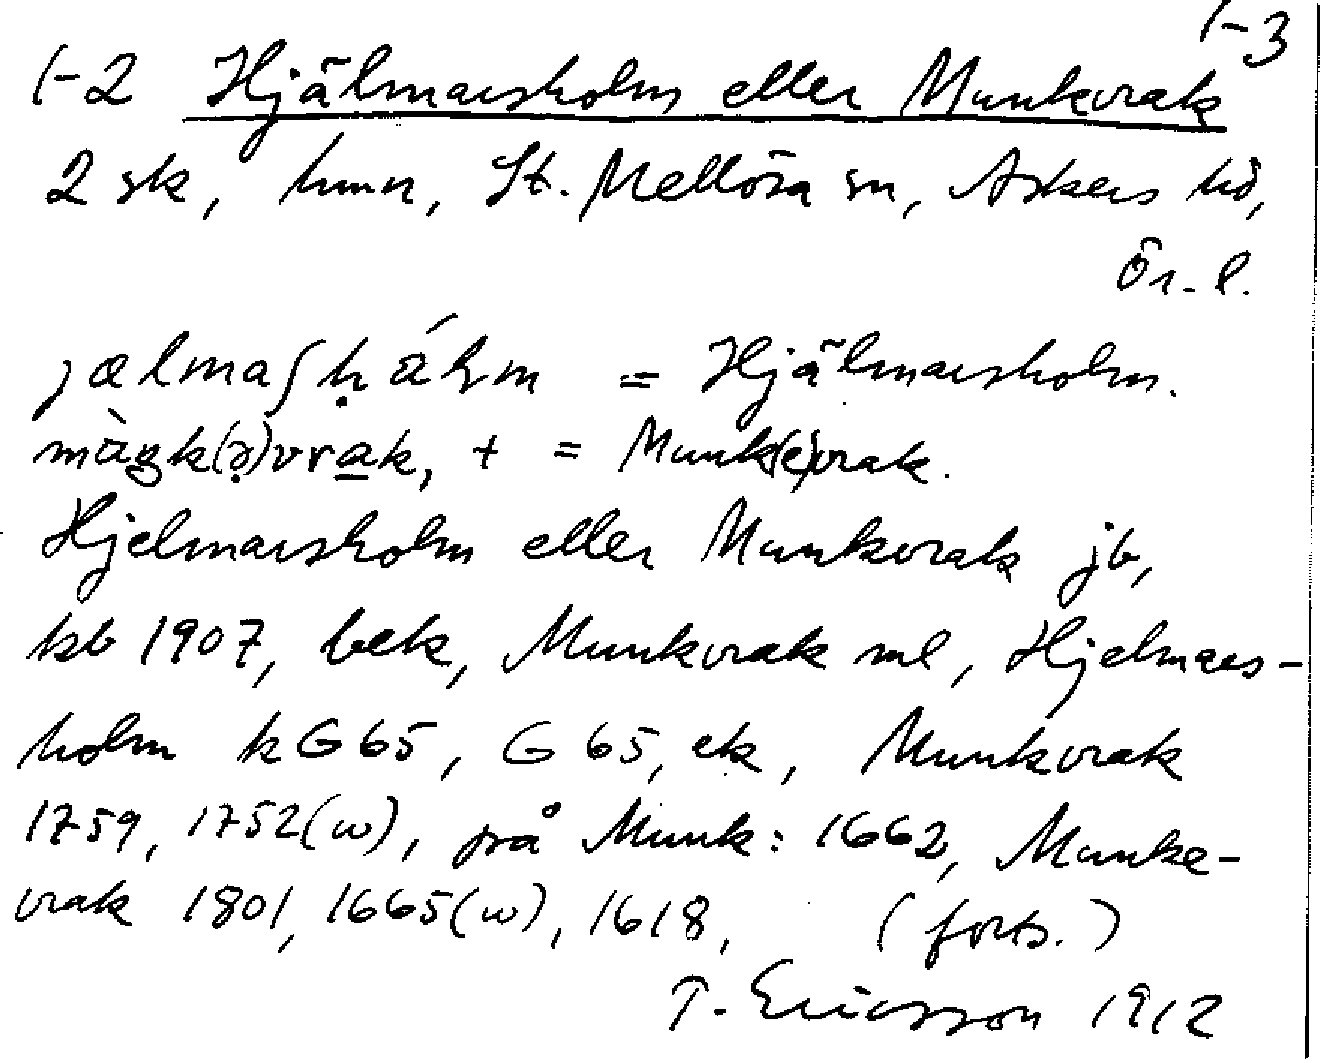 1-3
1-2 Hjälmarsholm eller Munkvrak
2 sk, hmn, St. Mellösa sn, Askers hd,
Ör. l.
= Hjälmarsholm.
+ = Munk(e)vrak.
Hjelmarsholm eller Munkvrak jb,
kb 1907, bek, Munkvrak ml, Hjelmars-
holm kG65, G65, ek, Munkvrak
1759, 1752(w), på Munk: 1662, Munke-
vrak 1801, 1665(w), 1618, (forts.)
T. Ericsson 1912